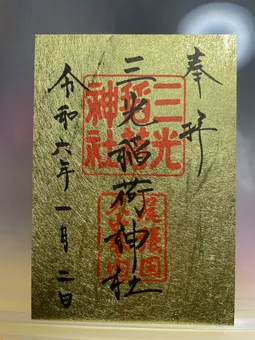 奉拝
三光稲荷神社
令和六年一月二日
三光稲荷神社
尾張国犬山